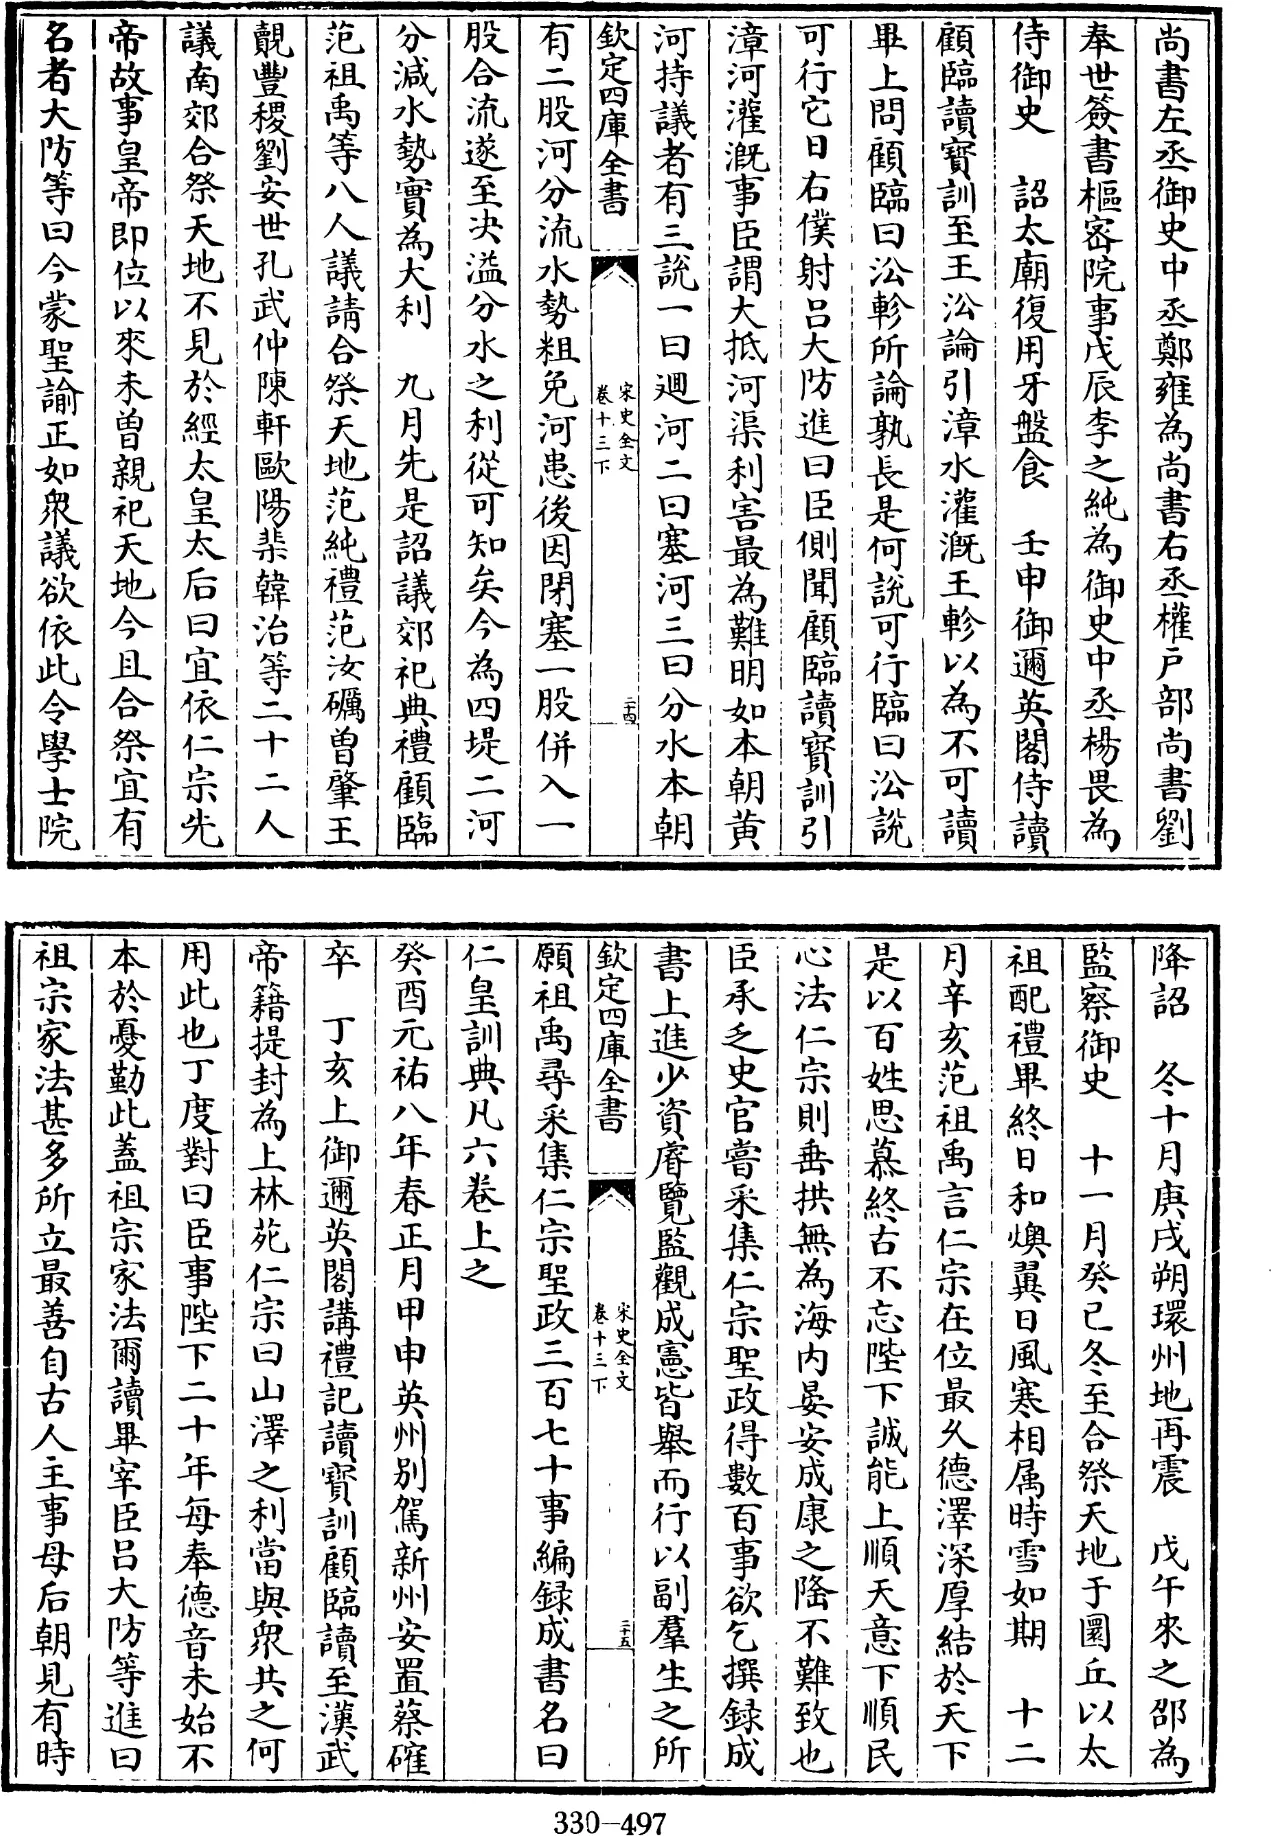 尚書左丞御史中丞鄭雍為尚書右丞權戶部尚書劉
奉世簽書樞密院事戊辰李之純為御史中丞楊畏為
侍御史　詔太廟復用牙盤食　壬申御邇英閣侍讀
顧臨讀寳訓至王沿論引漳水灌溉王軫以為不可讀
畢上問顧臨曰沿軫所論孰長是何說可行臨曰沿說
可行它日右僕射呂大防進曰臣側聞顧臨讀寳訓引
漳河灌溉事臣謂大抵河渠利害最為難明如本朝黄
河持議者有三說一曰迴河二曰塞河三曰分水本朝
欽定四庫全書
宋史全文
卷十三下
二十四
有二股河分流水勢粗免河患後因閉塞一股併入一
股合流遂至决溢分水之利從可知矣今為四堤二河
分減水勢實為大利　九月先是詔議郊祀典禮顧臨
范祖禹等八人議請合祭天地范純禮范汝礪曽肇王
覿豐稷劉安世孔武仲陳軒歐陽棐韓治等二十二人
議南郊合祭天地不見於經太皇太后曰宜依仁宗先
帝故事皇帝即位以來未曽親祀天地今且合祭宜有
名者大防等曰今蒙聖諭正如衆議欲依此令學士院
降詔　冬十月庚戌朔環州地再震　戊午來之邵為
監察御史　十一月癸已冬至合祭天地于圜丘以太
祖配禮畢終日和燠翼日風寒相属時雪如期　十二
月辛亥范祖禹言仁宗在位最久德澤深厚結於天下
是以百姓思慕終古不忘陛下誠能上順天意下順民
心法仁宗則垂拱無為海内晏安成康之隆不難致也
臣承乏史官嘗采集仁宗聖政得數百事欲乞撰録成
書上進少資睿覽監觀成憲皆舉而行以副羣生之所
欽定四庫全書
宋史全文
卷十三下
二十五
願祖禹尋采集仁宗聖政三百七十事編録成書名曰
仁皇訓典凡六卷上之
癸酉元祐八年春正月甲申英州别駕新州安置蔡確
卒　丁亥上御邇英閣講禮記讀寳訓顧臨讀至漢武
帝籍提封為上林苑仁宗曰山澤之利當與衆共之何
用此也丁度對曰臣事陛下二十年每奉德音未始不
本於憂勤此蓋祖宗家法爾讀畢宰臣呂大防等進曰
祖宗家法甚多所立最善自古人主事母后朝見有時
330-497